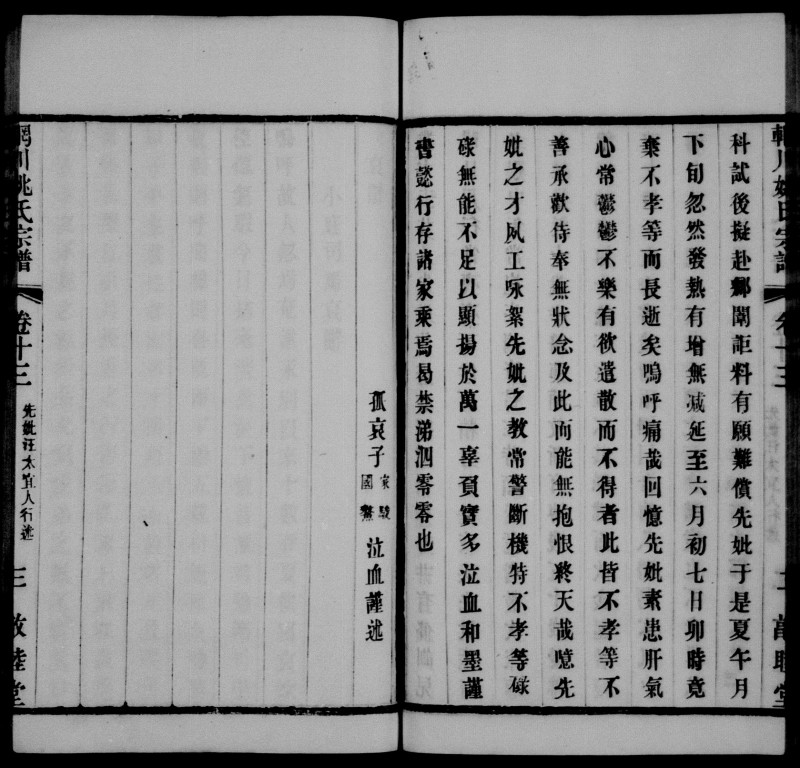 科試後擬赴鄉闈詎料有願難償先妣于是夏午月
下旬忽然發熱有增無减延至六月初七日卯時竟
棄不孝等而長逝矣嗚呼痛哉回憶先妣素患肝氣
心常鬱鬱不樂有欲遣散而不得者此皆不孝等不
善承歡侍奉無狀念及此而能無抱恨終天哉噫先
妣之才夙工咏絮先妣之教常警斷機特不孝等碌
碌無能不足以顯揚於萬一辜負實多泣血和墨謹
書懿行存諸家乘焉曷禁涕泗零零也
孤哀子家駿國 泣血謹述
川姚氏宗譜
卷十三
先妣汪太宜人行述
三
敦睦堂